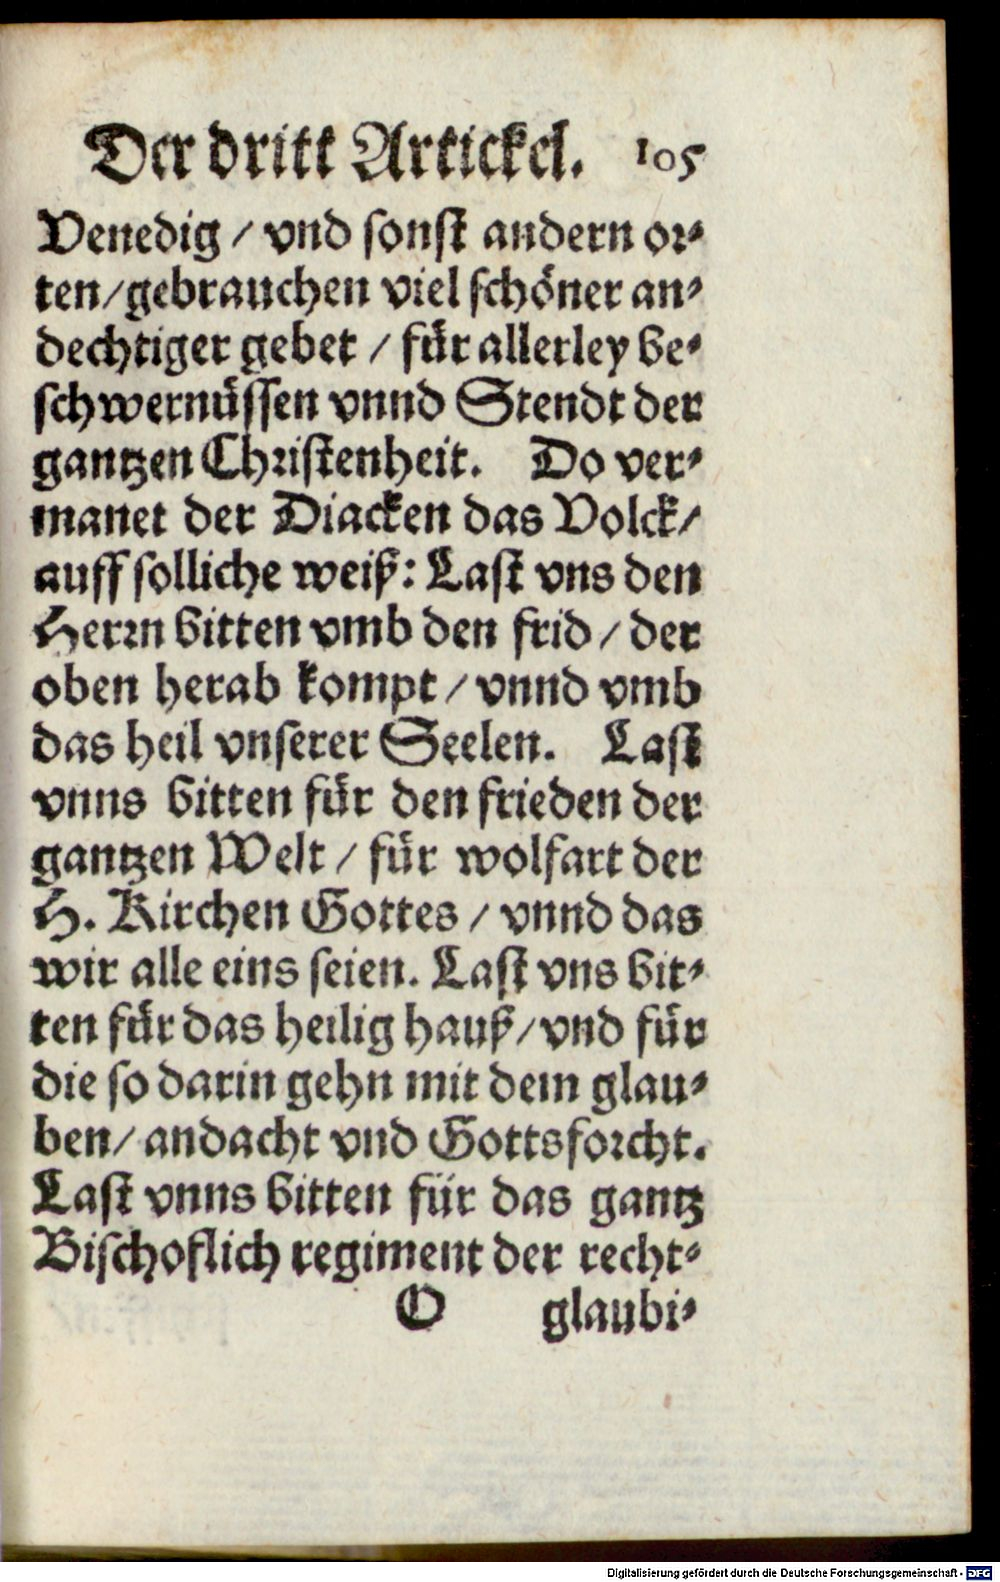 Der dritt Artickel. 105
Venedig / vnd sonst andern or⸗
ten/gebrauchen viel schöner an⸗
dechtiger gebet / für allerley be⸗
schwernüssen vnnd Stendt der
gantzen Christenheit. Do ver⸗
manet der Diacken das Volck/
auff solliche weiß: Last vns den
Herrn bitten vmb den frid / der
oben herab kompt / vnnd vmb
das heil vnserer Seelen. Last
vnns bitten für den frieden der
gantzen Welt / für wolfart der
H. Kirchen Gottes / vnnd das
wir alle eins seien. Last vns bit⸗
ten für das heilig hauß/vnd für
die so darin gehn mit dem glau⸗
ben/ andacht vnd Gottsforcht.
Last vnns bitten für das gantz
Bischoflich regiment der recht⸗
O glaubi⸗
Digitalisierung gefördert durch die Deutsche Forschungsgemeinschaft - DFG